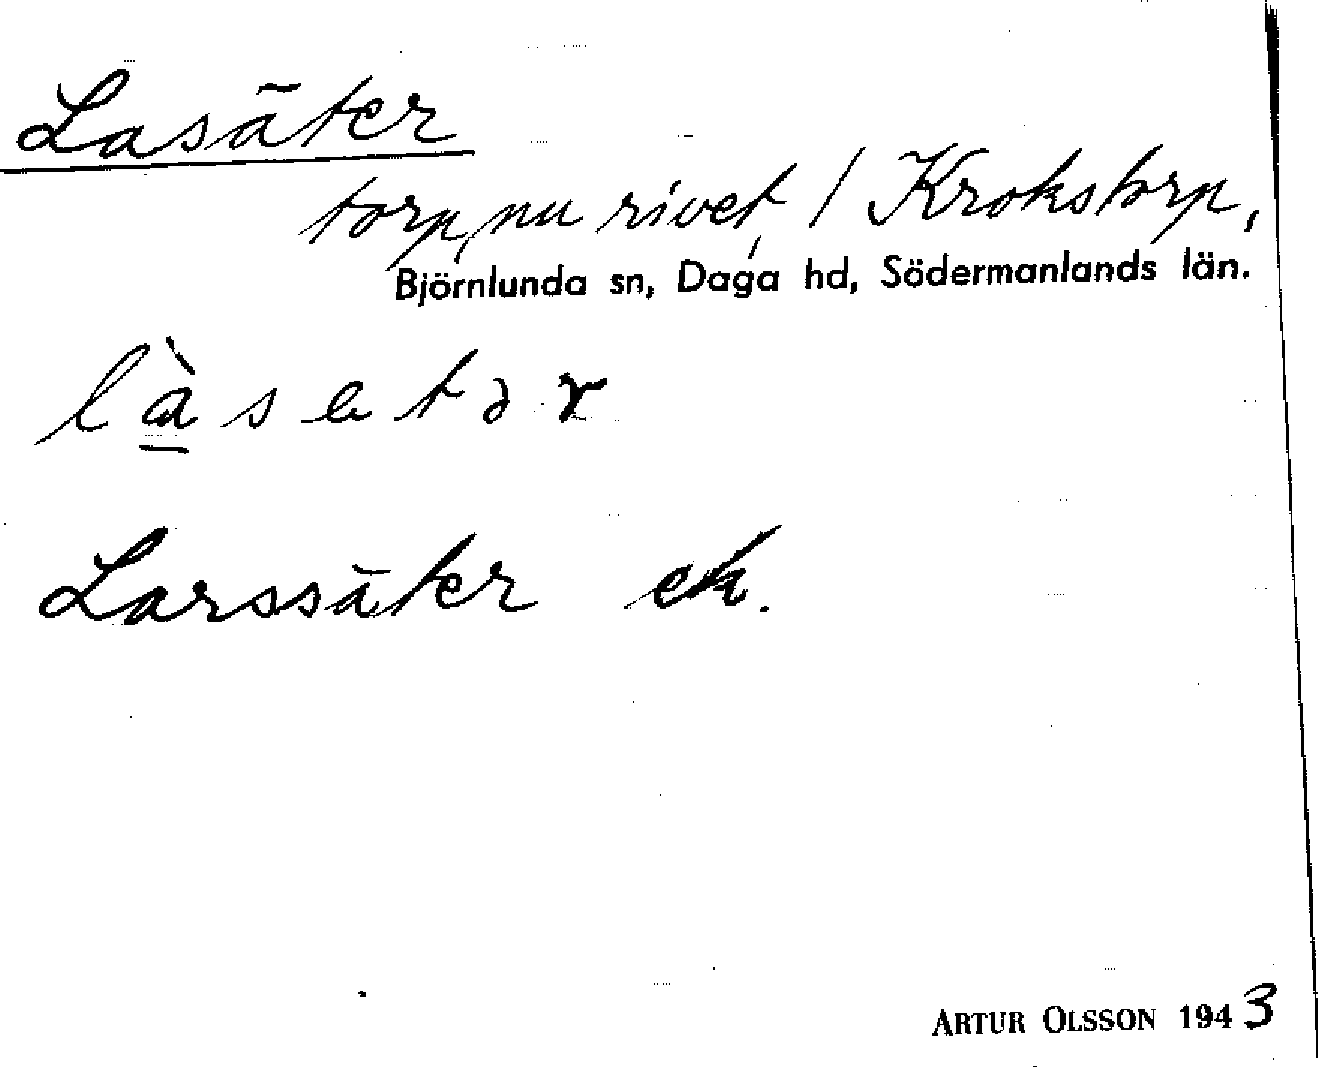 Lasäter
torp, nu rivet, / Krokstorp,
Björnlunda sn, Daga hd, Södermanlands län.
làsetər
Larssäter ek.
ARTUR OLSSON 1943